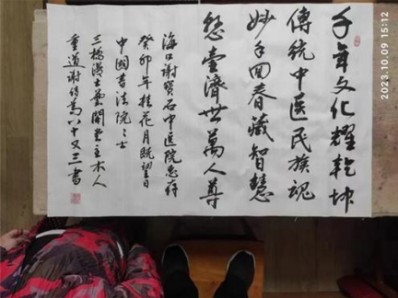 千年文化耀乾坤
傳統中医民族魂
妙手回春藏智慧
懸壺濟世萬人尊
海口謝寶石中医院惠存
癸卯年桂花月既望日
中國書法院士
三橋漫士藝閣里主木人
重道謝 八十又三書
2023.10.09 15:12